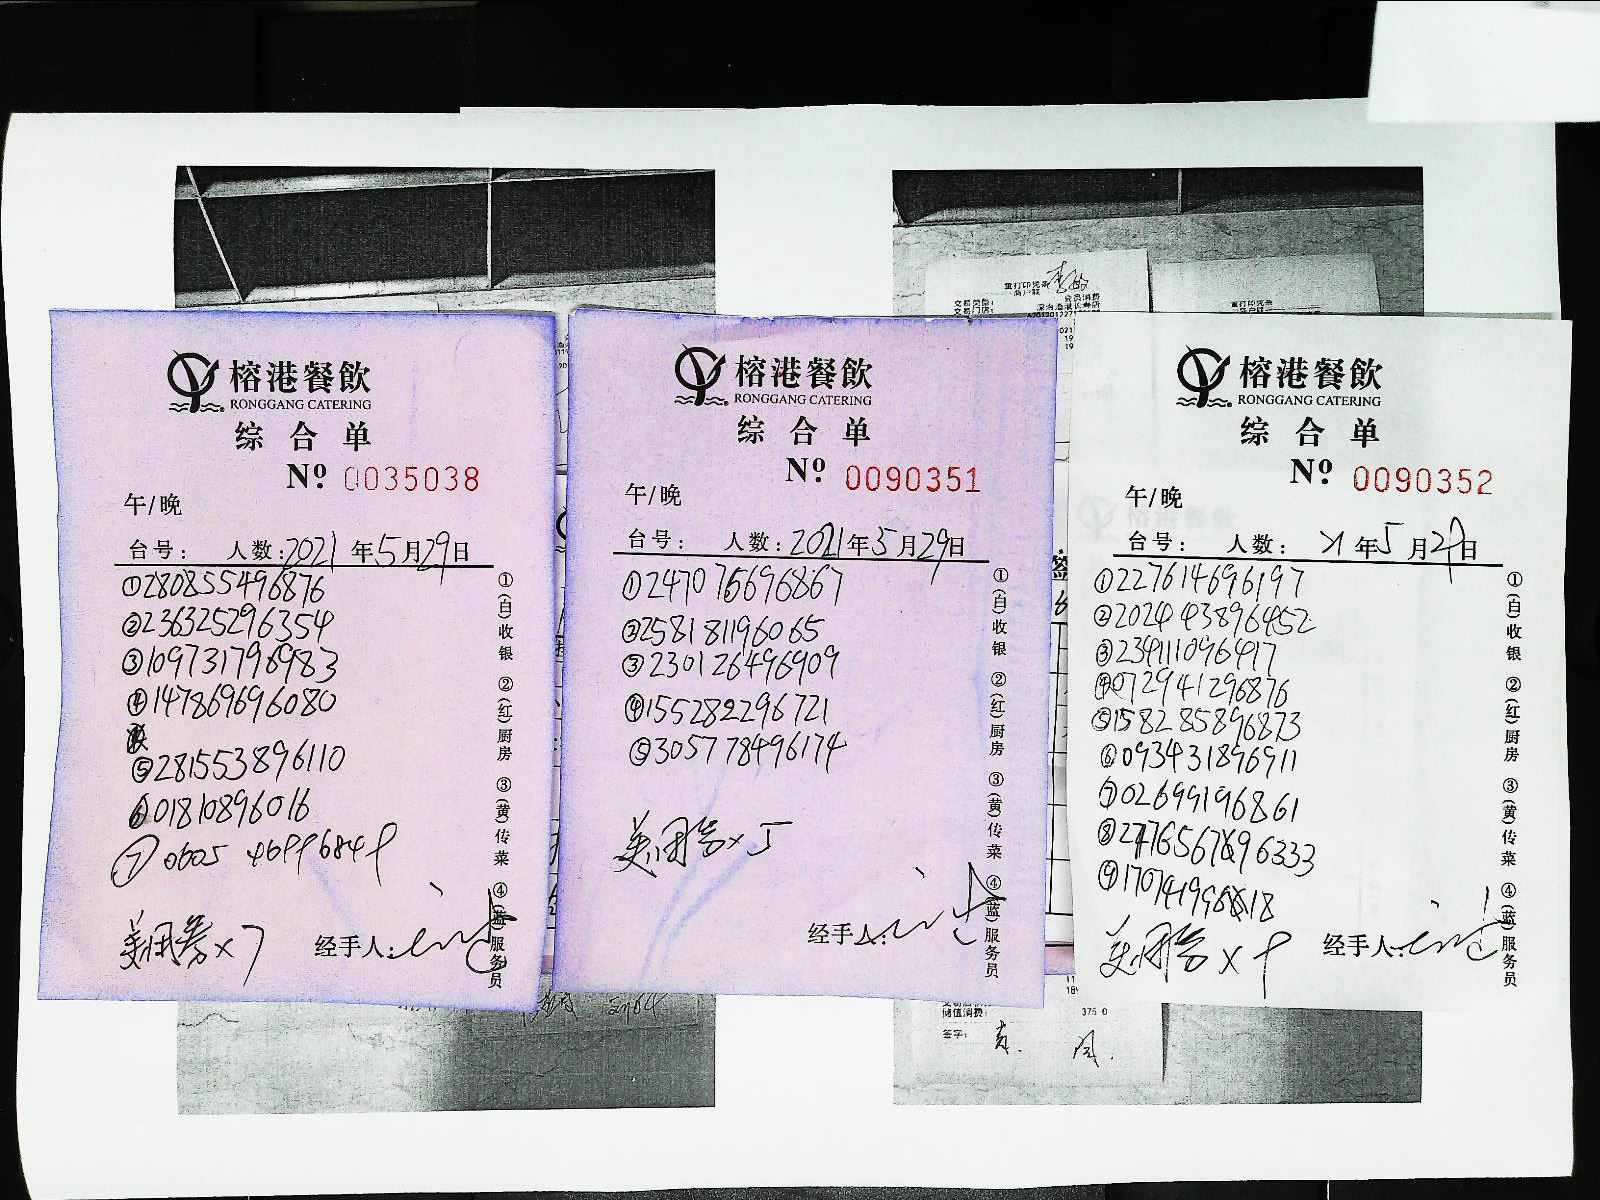 榕港餐飲
RONGGANG CATERING
综合单
Nº 0035038
午/晚
台号： 人数：2021年5月29日
①280855496876
②236325296354
③109731796983
④147869696080
⑤281553896110
⑥01810896016
⑦0605 46996849
美团券×7 经手人：
①(白)收银 ②(红)厨房 ③(黄)传菜 ④(蓝)服务员
榕港餐飲
RONGGANG CATERING
综合单
Nº 0090351
午/晚
台号： 人数：2021年5月29日
①247076696867
②258181196065
③230126496909
④155282296721
⑤305778496174
美团券×5
经手人：
①(白)收银 ②(红)厨房 ③(黄)传菜 ④(蓝)服务员
重打印凭条
商户联
交易类型： 会员消费
交易门店：
重打印凭条
榕港餐飲
RONGGANG CATERING
综合单
Nº 0090352
午/晚
台号： 人数： 21年5月29日
①227614696197
②202443896452
③234111096417
④072941296876
⑤158285896873
⑥093431896911
⑦02699196861
美团券×9 经手人：
①(白)收银 ②(红)厨房 ③(黄)传菜 ④(蓝)服务员
储值消费： 375 0
签字：